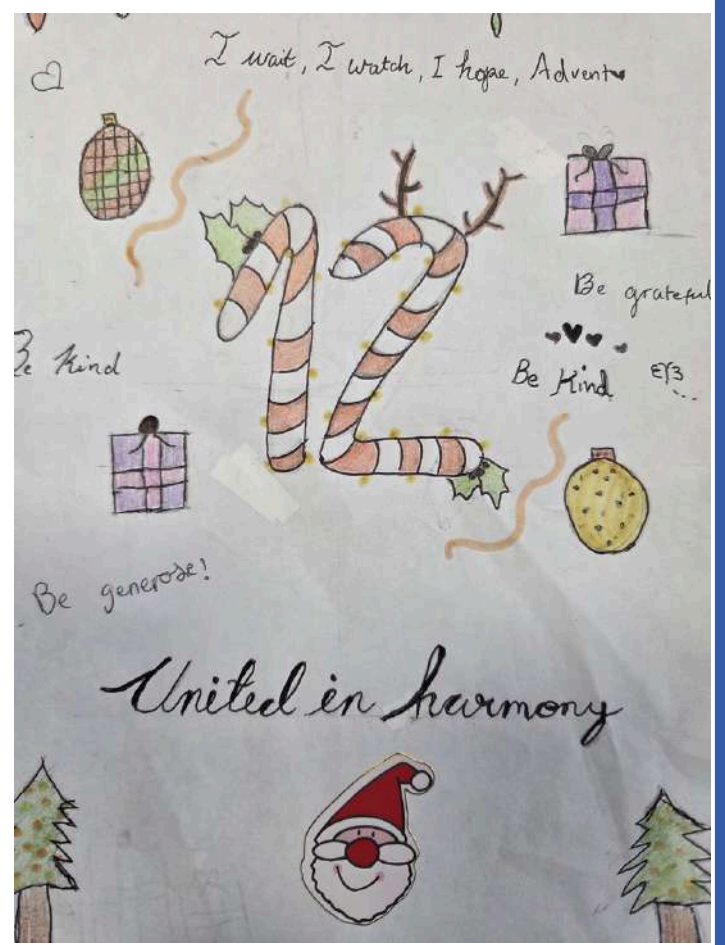 I wait, I watch, I hope, Advent
12
Be grateful
Be Kind
Be Kind
Be generose!
United in harmony